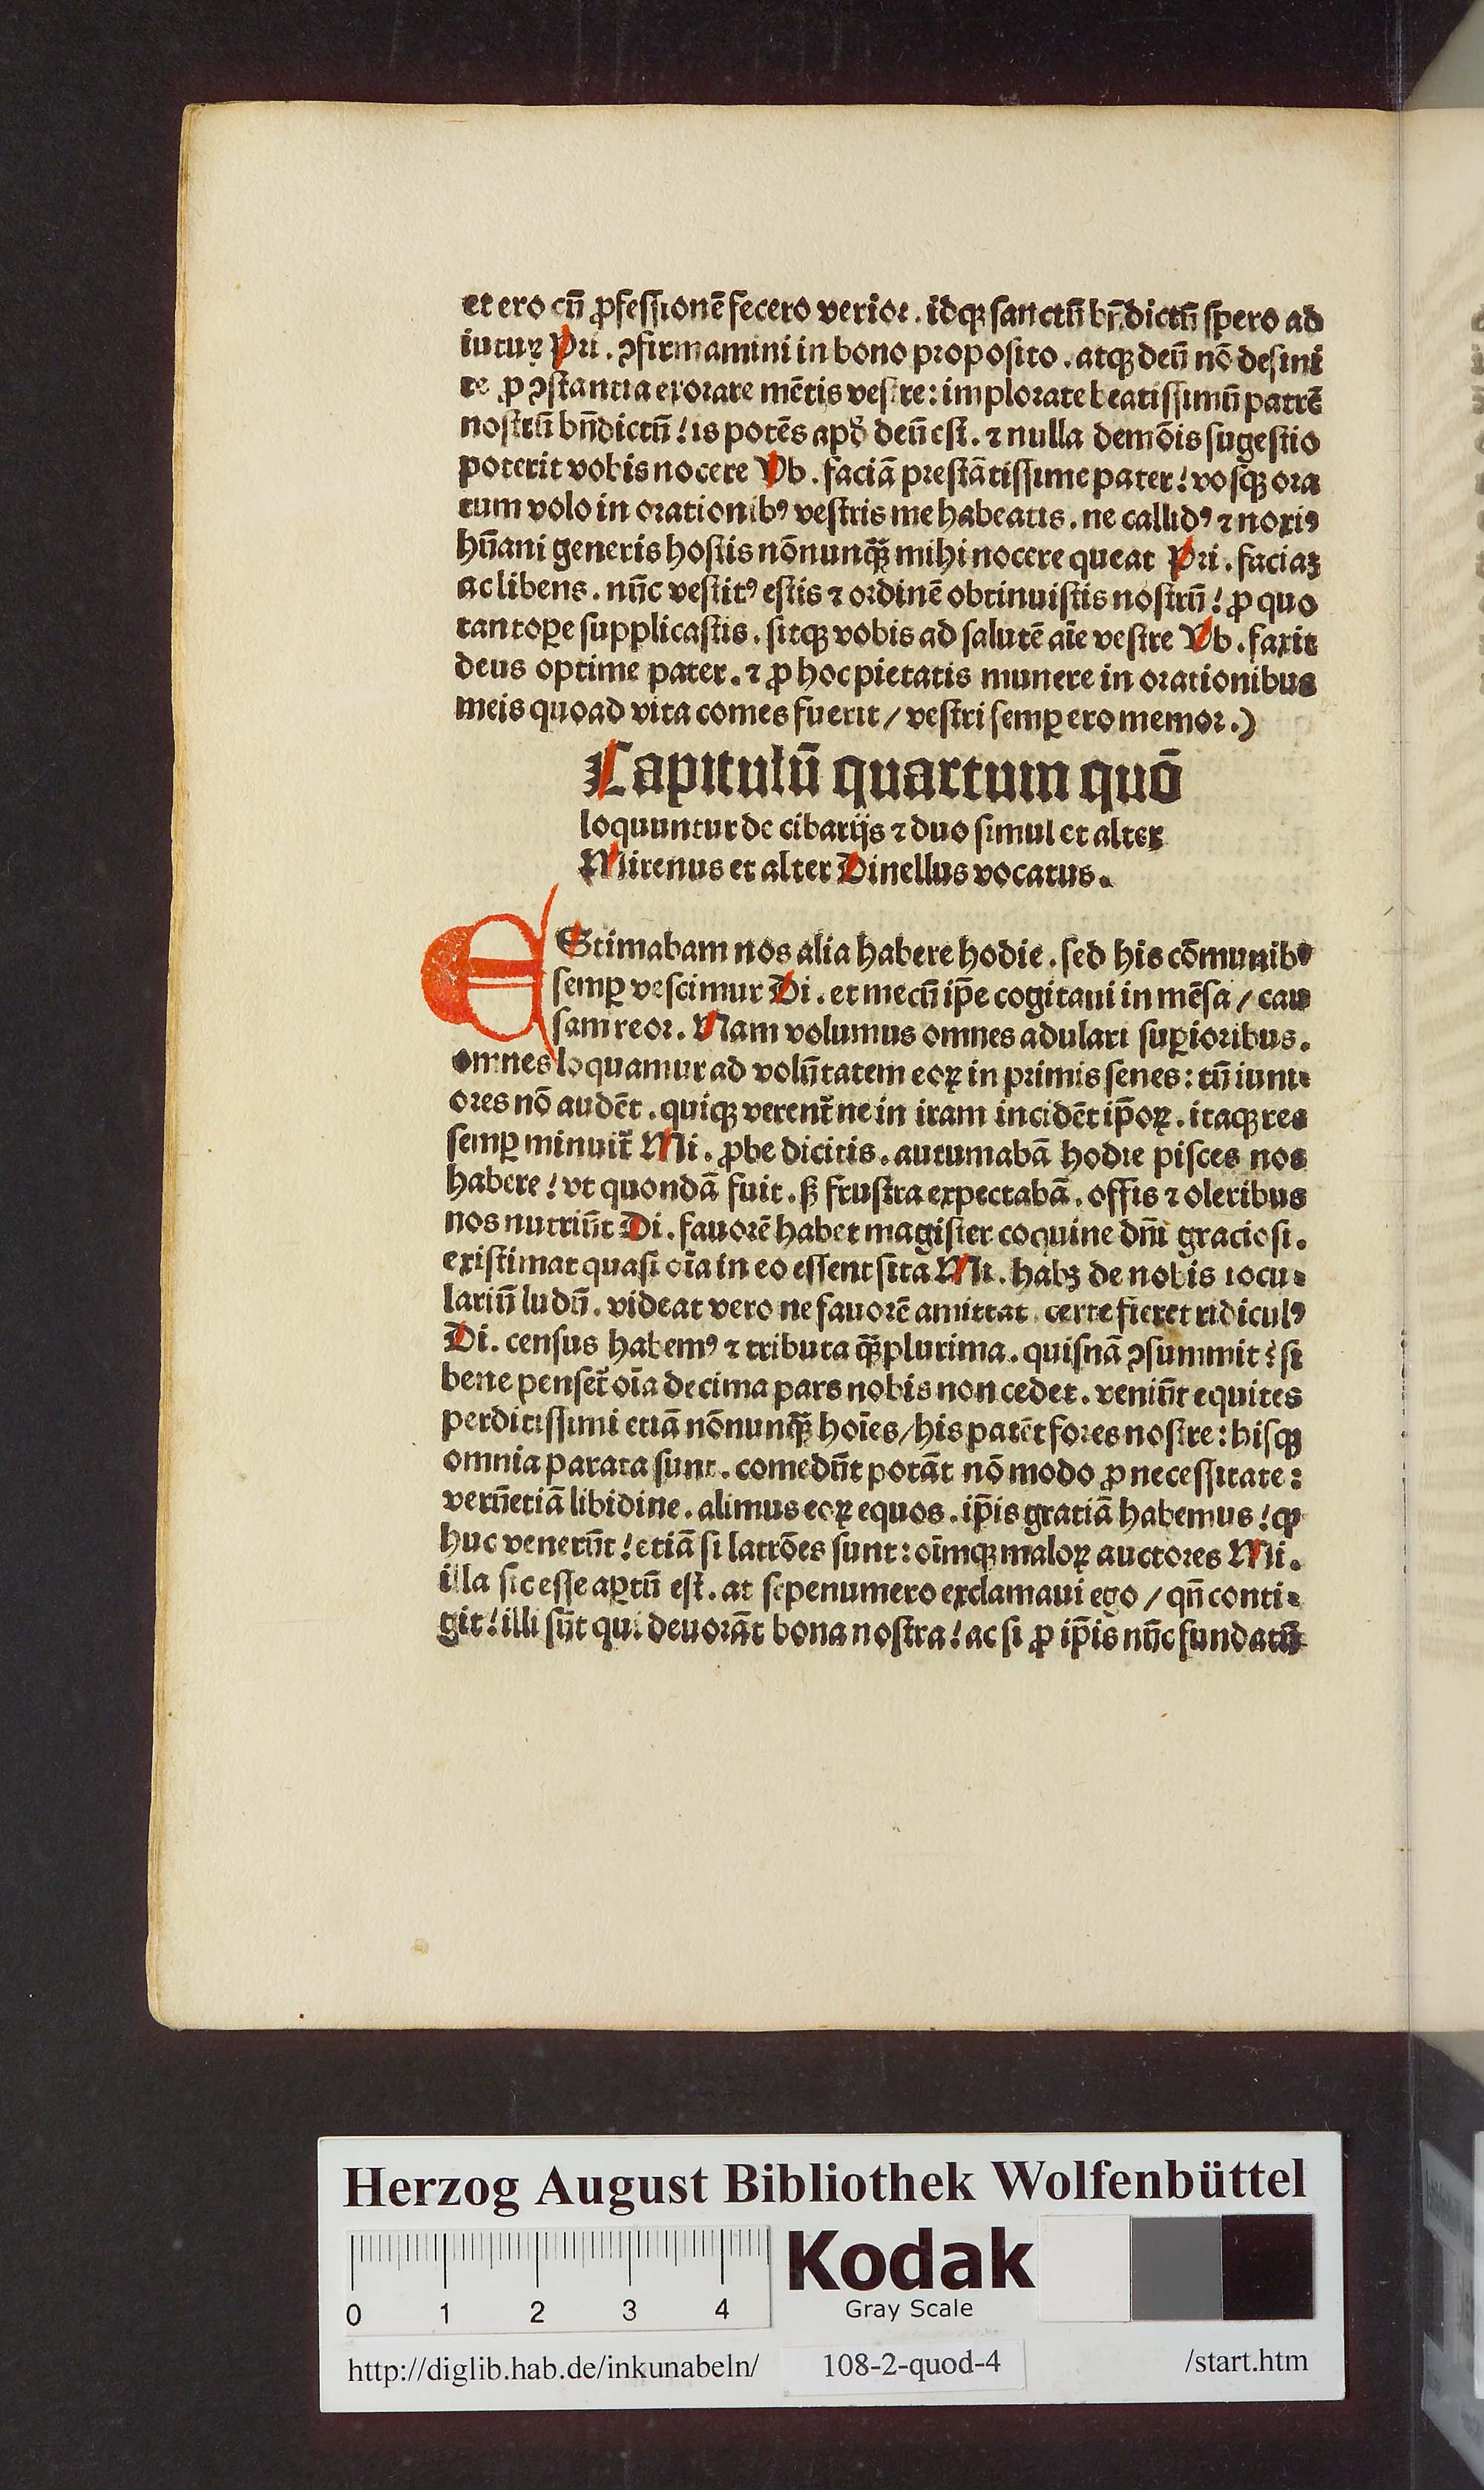 et ero cū ꝓfeſſionē fecero verior. idqꝫ ſanctū bn̄dictū ſpero ad
iuturꝝ Pri. ꝯfirmamini in bono propoſito. atqꝫ deū nō deſini
te ꝓ ꝯſtantia exorare mētis veſtre: implorate beatiſſimū patrē
noſtrū bn̄dictū! is potēs apd̕ deū eſt. ⁊ nulla demōis ſugeſtio
poterit vobis nocere Vb. faciā preſtātiſſime pater! voſqꝫ ora
tum volo in orationibꝰ veſtris me habeatis. ne callidꝰ ⁊ noxiꝰ
hūani generis hoſtis nōnunqꝫ̄ mihi nocere queat Pri. faciaꝫ
ac libens. nūc veſtitꝰ eſtis ⁊ ordinē obtinuiſtis noſtrū! ꝓ quo
tantoꝑe ſupplicaſtis. ſitqꝫ vobis ad ſalutē aīe veſtre Vb. faxit
deus optime pater. ⁊ ꝓ hoc pietatis munere in orationibus
meis quoad vita comes fuerit / veſtri ſemꝑ ero memor.)
Capitulū quartum quō
loquuntur de cibarijs ⁊ duo ſimul et alter
Mirenus et alter Dinellus vocatus.
EStimabam nos alia habere hodie. ſed his cōmunibꝰ
ſemꝑ veſcimur Di. et mecū ip̄e cogitaui in mēſa / cau
ſam reor. Nam volumus omnes adulari ſuꝑioribus.
omnes loquamur ad volūtatem eoꝝ in primis ſenes: tū iuni⸗
ores nō audēt. quiqꝫ verent̄ ne in iram incidēt ip̄oꝝ. itaqꝫ res
ſemꝑ minuit̄ Mi. ꝓbe dicitis. autumabā hodie piſces nos
habere! vt quondā fuit. ſꝫ fruſtra expectabā. offis ⁊ oleribus
nos nutriūt Di. fauorē habet magiſter coquine dn̄i gracioſi.
exiſtimat quaſi oīa in eo eſſent ſita Mi. habꝫ de nobis iocu⸗
lariū ludū. videat vero ne fauorē amittat. certe fieret ridiculꝰ
Di. cenſus habemꝰ ⁊ tributa qꝫ̄plurima. quiſnā ꝯſummit? ſi
bene penſet̄ oīa decima pars nobis non cedet. veniūt equites
perditiſſimi etiā nōnunqꝫ̄ hoīes / his patēt fores noſtre: hiſqꝫ
omnia parata ſunt. comedūt potāt nō modo ꝓ neceſſitate:
verūetiā libidine. alimus eoꝝ equos. ip̄is gratiā habemus! ꝙ
huc venerūt! etiā ſi latrōes ſunt: oīmqꝫ maloꝝ auctores Mi.
illa ſic eſſe aꝑtū eſt. at ſepenumero exclamaui ego / qn̄ conti⸗
git! illi ſūt qui deuorāt bona noſtra! ac ſi ꝓ ip̄is nūc fundatū
Herzog August Bibliothek Wolfenbüttel
Kodak
Gray Scale
0 1 2 3 4
http://diglib.hab.de/inkunabeln/ 108-2-quod-4 /start.htm